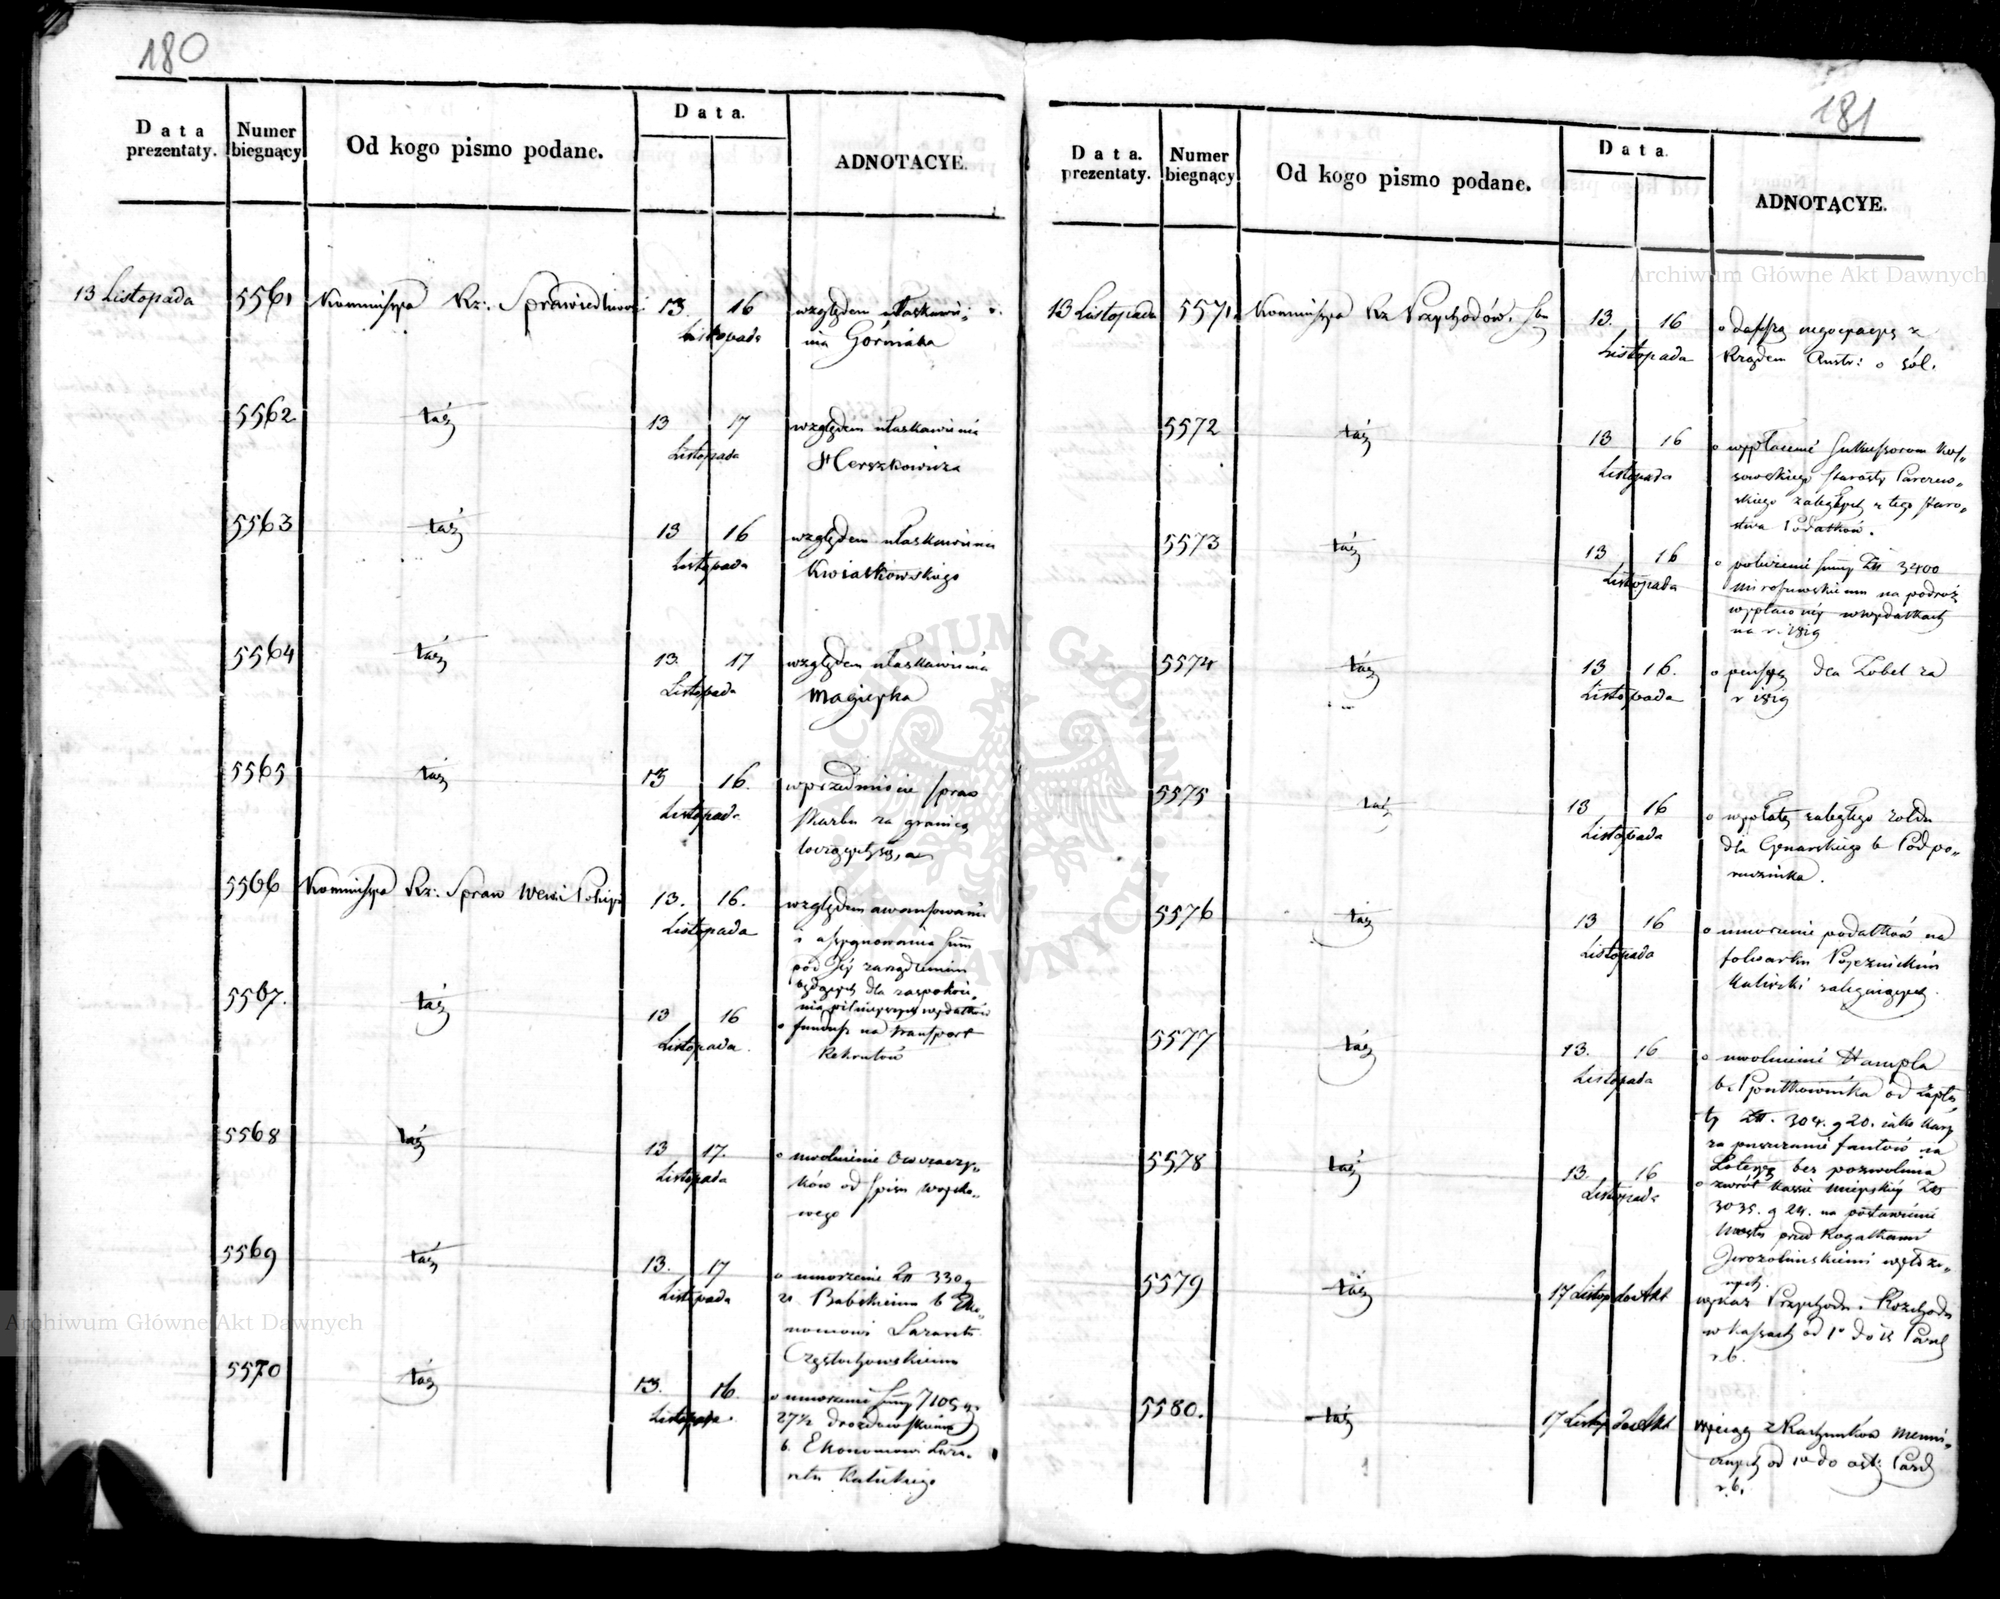 180
Data prezentaty. Numer biegnący Od kogo pismo podane. Data. ADNOTACYE.
13 Listopada 5561 Kommissya Rz: Sprawiedliwości 13 16 Listopada względem ułaskawie-
nia Górniaka
5562 táż 13 17 Listopada względem ułaskawienia
Herszkowicza
5563 táż 13 16 Listopada względem ułaskawienia
Kwiatkowskiego
5564 táż 13. 17 Listopada względem ułaskawienia
5565 táż 13 16. Listopada w przedmiocie spraw
Skarbu za granicą
toczących się
5566 Kommissya Rz: Spraw Wew: i Policyi 13. 16. Listopada względem awansowania
i assygnowania summ
pod Jéj zarządzeniem
będących dla zaspokoie-
nia pilnieyszych wydatków
5567. táż 13 16 Listopada o fundusz na transport
Rekrutów
5568 táż 13 17. Listopada o uwolnienie Owczarzy-
ków od spisu woysko-
wego
5569 táż 13. 17 Listopada o umorzenie Zł 330 g
21. Babskiemu b. Eko-
nomowi Lazaretu
Częstochowskiemu
5570 táż 13. 16. Listopada o umorzenie summy 7105 g
27½ Drozdowskiemu
b. Ekonomowi Laza-
retu Kaliskiego
181
Data. prezentaty. Numer biegnący Od kogo pismo podane. Data. ADNOTACYE.
13 Listopada 5571. Kommissya Rz Przychodów i Skar 13. 16 Listopada o dalszą negocyacyą z
Rządem Austr: o sól.
5572 táż 13 16 Listopada o wypłacenie Sukcessorom Kos-
sowskiego Starosty Parczew-
skiego zaległych z tego Staro-
stwa Podatków.
5573 táż 13 16 Listopada o policzenie summy Zł 3400
na podróż
wypłaconéy w wydatkach
na r. 1819
5574 táż 13 16. Listopada o pensyą dla Zobel za
r 1819
5575 táż 13 16 Listopada o wypłatę zaległego żołdu
dla b Podpo-
rucznika.
5576 táż 13 16 Listopada o umorzenie podatków na
folwarku
zalegaiących.
5577 táż 13. 16 Listopada o uwolnienie Hampla
b. Podpułkownika od zapła-
ty Zł. 304. g 20. iako kary
za puszczanie fantów na
Loteryą bez pozwolenia
5578 táż 13. 16 Listopada o zwrót kassie mieyskiéy Zł
3035. g 24. na postawienie
mostu przed Rogatkami
Jerozolimskiemi wyłożo-
nych.
5579 táż 17 Listop. do Akt wykaz Przychodu i Rozchodu
w kassach od 1º do 15 Paźd
r. b.
5580. táż 17 Listop. do Akt wyciąg z Rachunków menni-
cznych od 1º do ost: Paźd
r. b.
Archiwum Główne Akt Dawnych
Archiwum Główne Akt Dawnych
ARCHIWUM GŁÓWNE AKT DAWNYCH